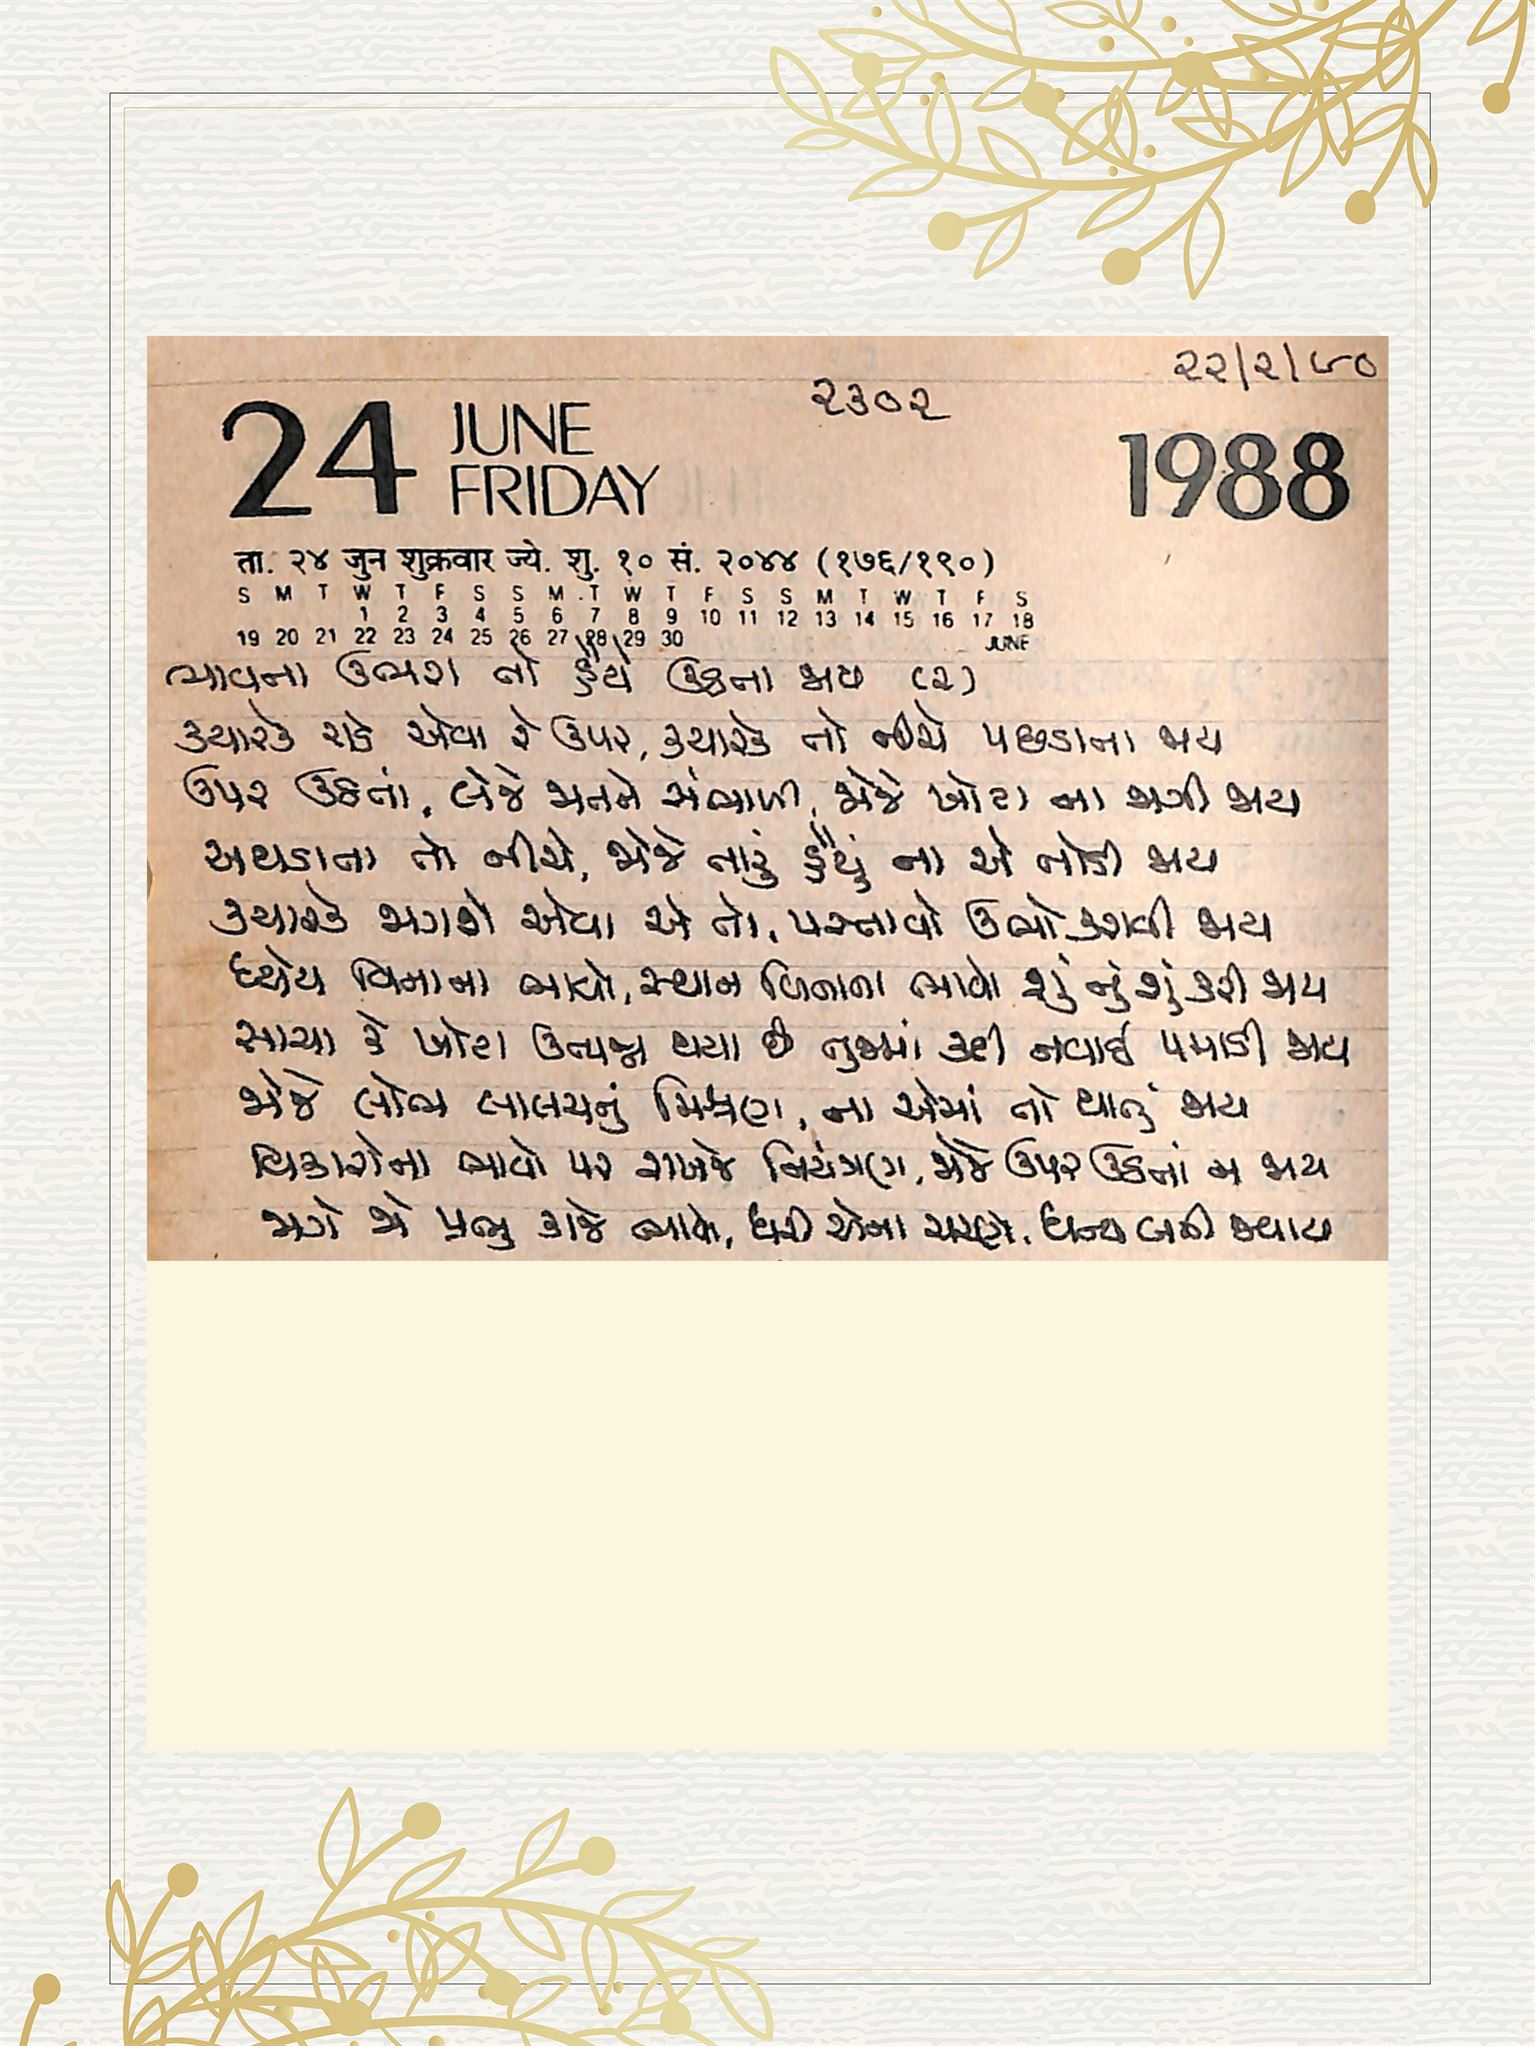 ૨૨/૨/૯૦
૨૩૦૨
24 JUNE FRIDAY 1988
ता. २४ जुन शुक्रवार ज्ये. शु. १० सं. २०४४ (१७६/१९०)
S M T W T F S S M T W T F S S M T W T F S
1 2 3 4 5 6 7 8 9 10 11 12 13 14 15 16 17 18
19 20 21 22 23 24 25 26 27 28 29 30 JUNE
ભાવના ઉભરા તો હૈયે ઉઠતા જાય (૨)
ક્યારેક રાકે એવા રે ઉપર, ક્યારેક તો નીચે પછડાતા જાય
ઉપર ઉઠતાં, લેજે મનને સંભાળી, જોજે ખોટા ના જાગી જાય
અથડાતા તો નીચે, જોજે તારું હૈયું ના એ તોડી જાય
ક્યારેક જાગશે એવા એ તો, પસ્તાવો ઉભો કરાવી જાય
ધ્યેય વિનાના ભાવો, સ્થાન વિનાના ભાવો શું નું શું કરી જાય
સાચા કે ખોટા ઉત્પન્ન થયા છે તુજમાં કદી નવાઈ પમાડી જાય
જોજે લોભ લાલચનું મિશ્રણ, ના એમાં તો થાતું જાય
વિકારોના ભાવો પર રાખજે નિયંત્રણ, જોજે ઉપર ઉઠતાં ન જાય
જાગે જો પ્રભુ કાજે ભાવો, ધરી એના ચરણે, ધન્ય બની જવાય